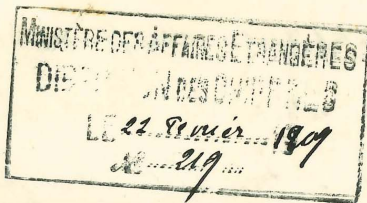 MINISTÈRE DES AFFAIRES ÉTRANGÈRES
DIRECTION DES CHIFFRES
LE 22 Février 1909
№ 219